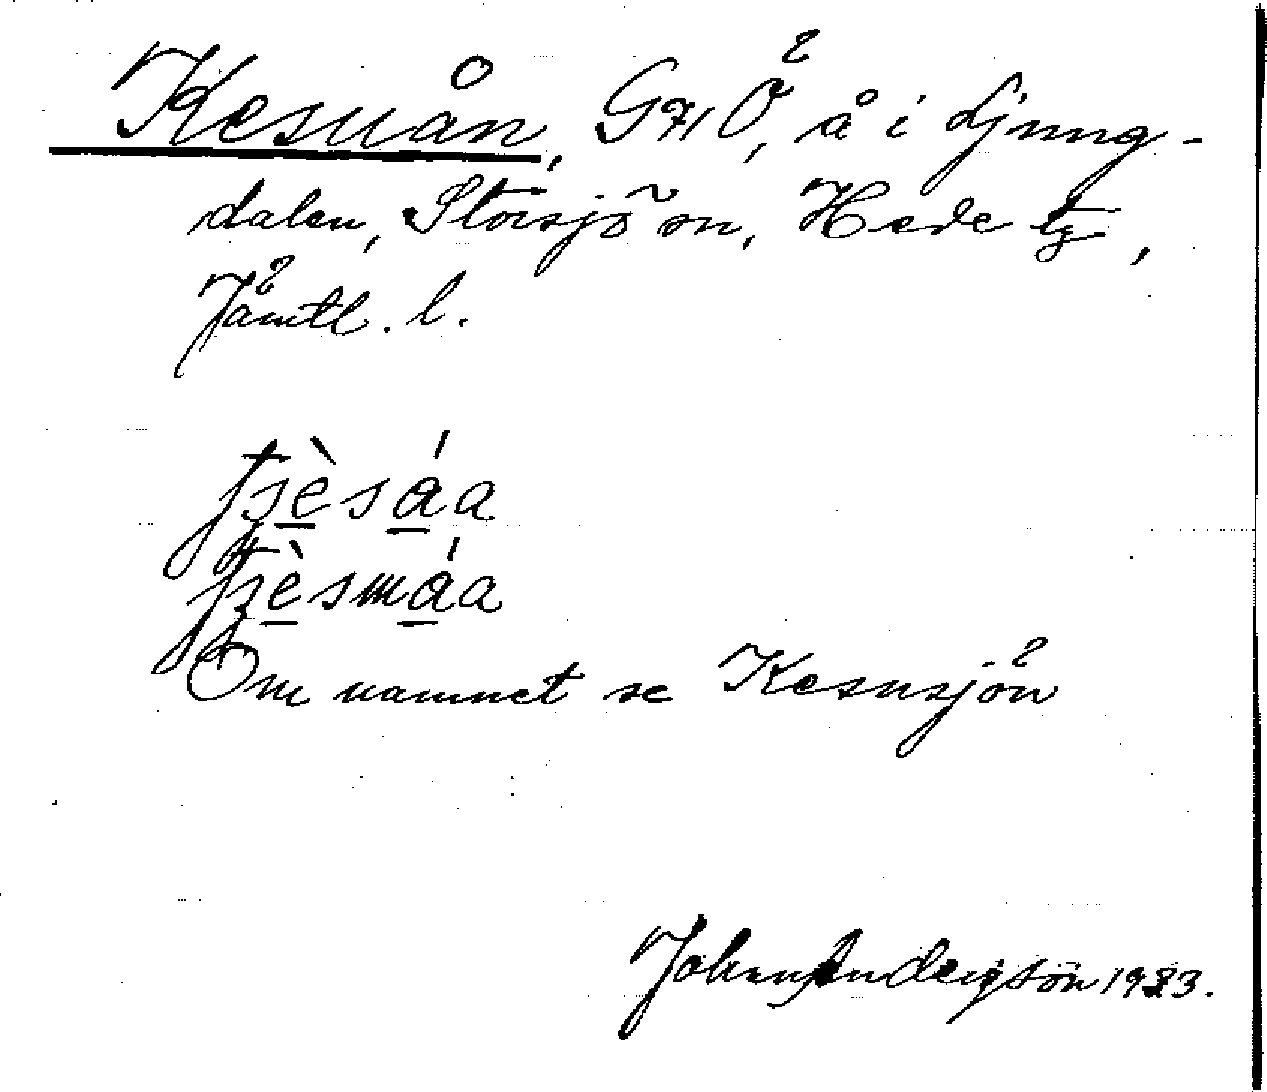 Kesuån, G71Ö, å i Ljung-
dalen, Storsjö sn, Hede tg,
Jämtl. l.
Om namnet se Kesusjön
Johan Andersson 1923.